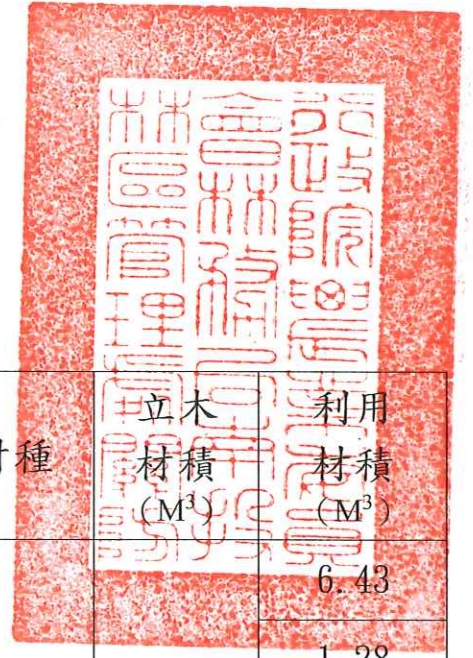 行政院農業委員
會林務局南投
林區管理處關防
材種
立木
材積
(M³)
利用
材積
(M³)
6.43
1.28